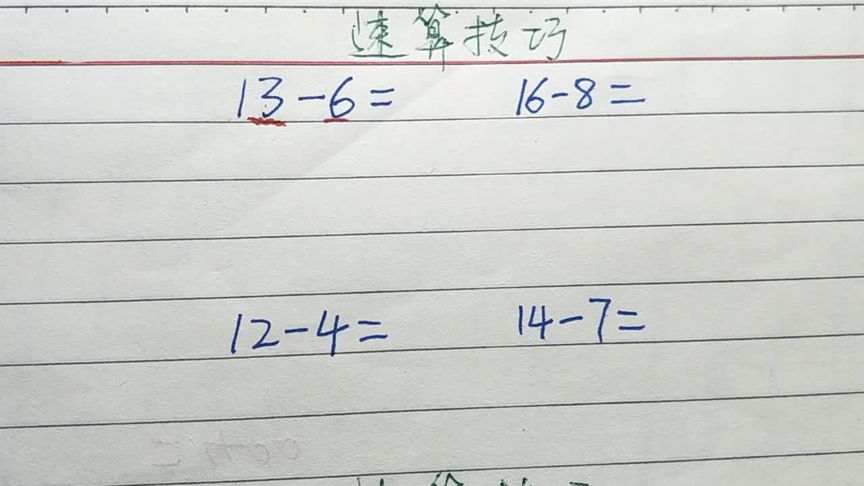 速算技巧
13-6= 16-8=
12-4= 14-7=